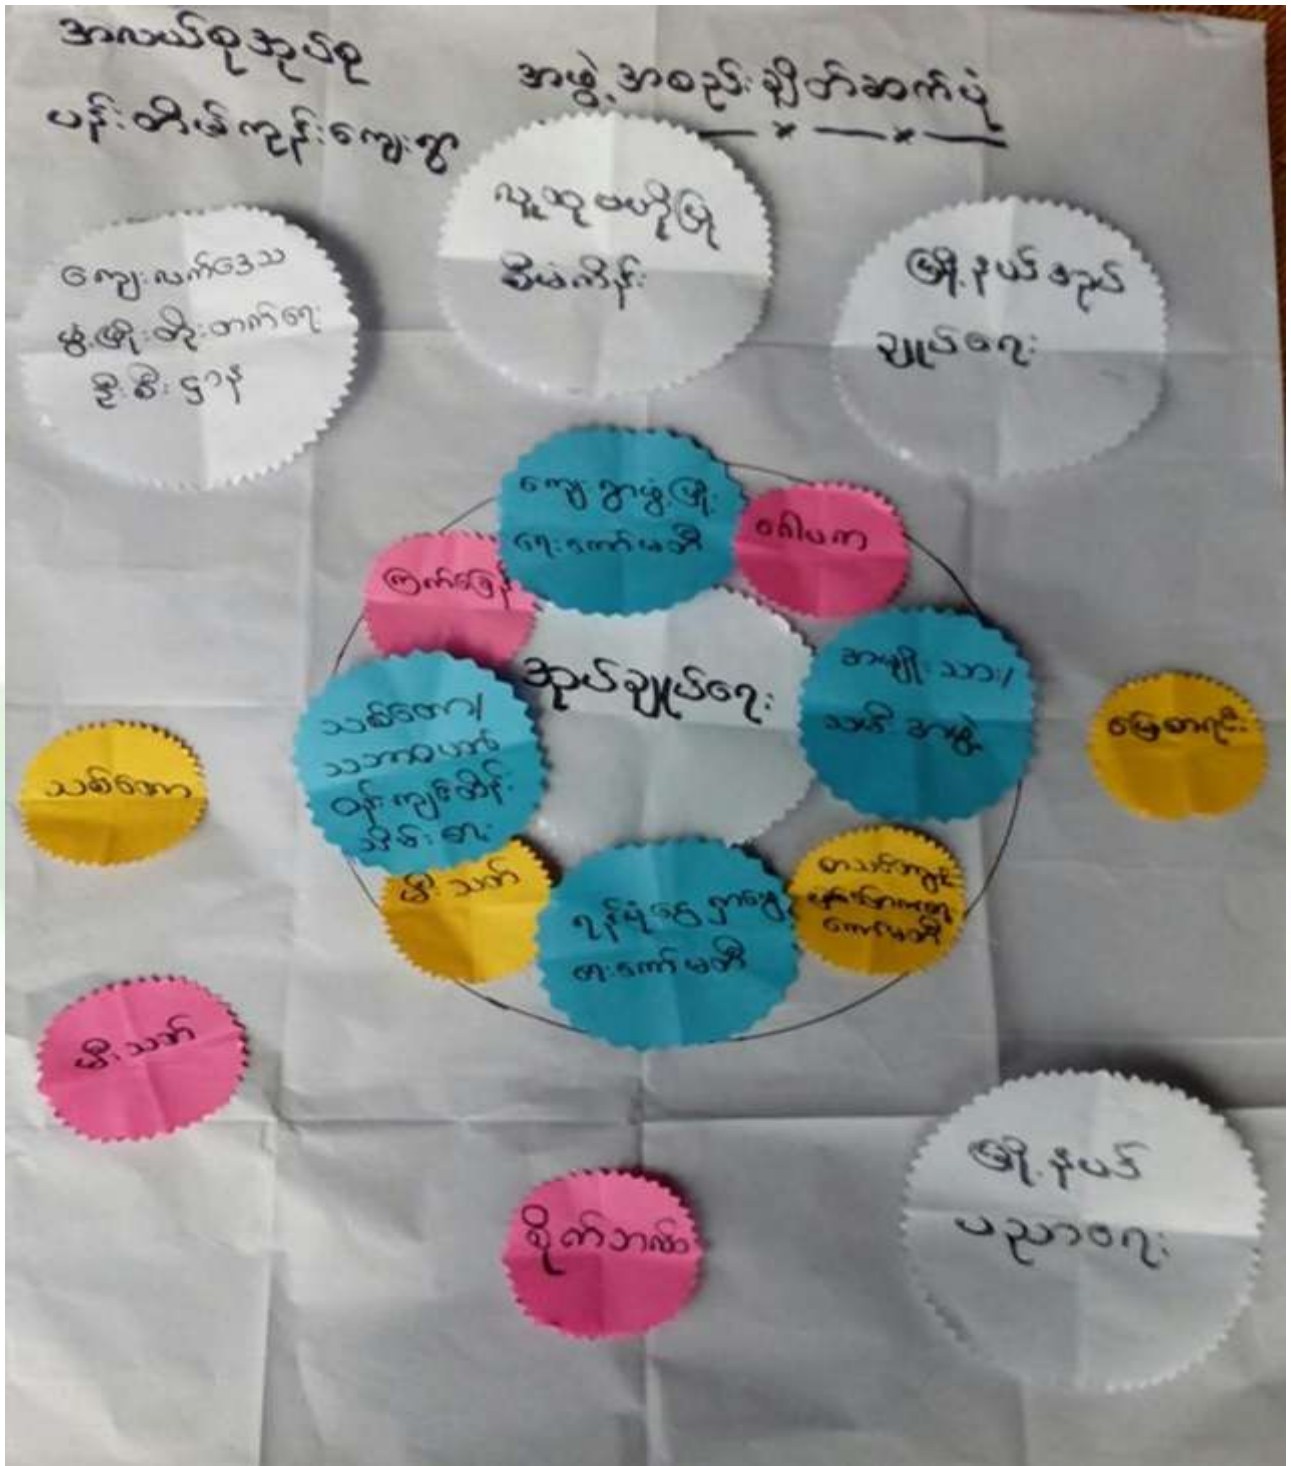 အလယ်စုအုပ်စု
ပန်းတိမ်ကုန်းကျေးရွာ
အဖွဲ့အစည်းချိတ်ဆက်ပုံ
ကျေးလက်ဒေသ
ဖွံ့ဖြိုးတိုးတက်ရေး
ဦးစီးဌာန
လူထုဗဟိုပြု
စီမံကိန်း
မြို့နယ်အုပ်
ချုပ်ရေး
ကျေးရွာဖွံ့ဖြိုး
ရေးကော်မတီ
ဂေါပက
ကြက်ခြေနီ
အုပ်ချုပ်ရေး
အမျိုးသား/
သမီးအဖွဲ့
သစ်တော/
သဘာဝပတ်
ဝန်းကျင်ထိန်း
သိမ်းရေး
မြေစာရင်း
သစ်တော
မီးသတ်
ရန်ပုံငွေရှာဖွေ
ရေးကော်မတီ
ကော်မတီ
မီးသတ်
စိုက်ဘဏ်
မြို့နယ်
ပညာရေး